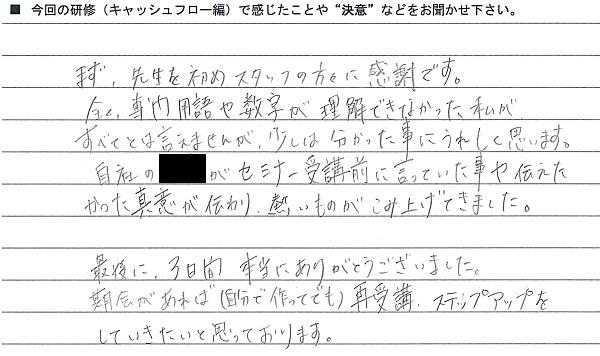 ■ 今回の研修（キャッシュフロー編）で感じたことや“決意”などをお聞かせ下さい。
まず、先生を初めスタッフの方々に感謝です。
全く、専門用語や数字が理解できなかった私が、
すべてとは言えませんが、少しは分かった事にうれしく思います。
自社の がセミナー受講前に言っていた事や伝えた
かった真意が伝わり、熱いものがこみ上げてきました。
最後に、3日間本当にありがとうございました。
期会があれば（自分で作ってでも）再受講、ステップアップを
していきたいと思っております。